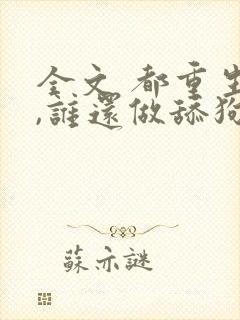 全文 都重生
,誰還做舔狗
蘇亦謎